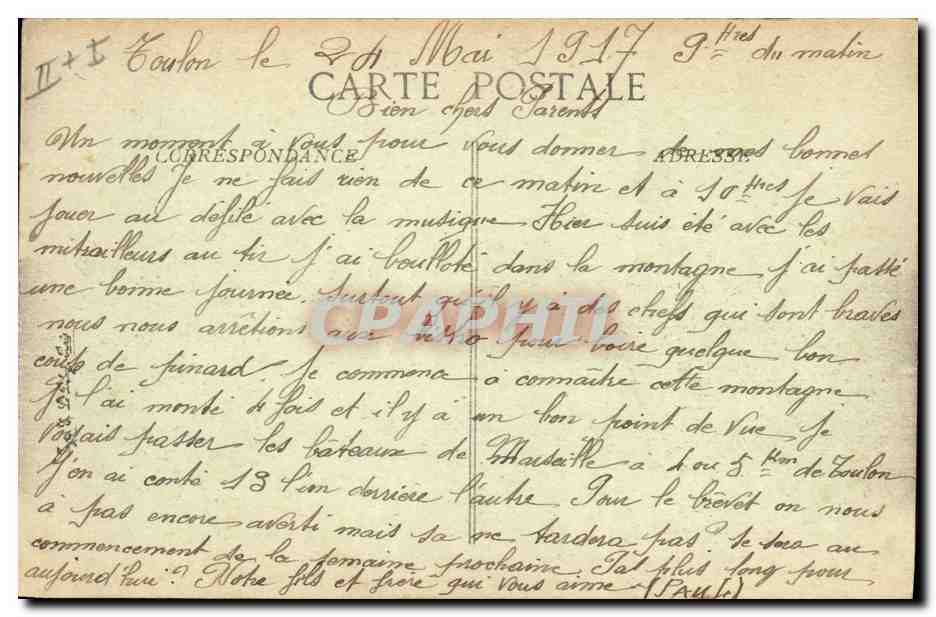 II + I
Toulon le 24 Mai 1917 9 Hres du matin
CARTE POSTALE
Bien chers Parents
Un moment à vous pour vous donner de mes bonnes
CORRESPONDANCE ADRESSE
nouvelles Je ne fais rien de ce matin et à 10 Hres Je vais
Jouer au défilé avec la musique Hier suis été avec les
mitrailleurs au tir J'ai boulloté dans la montagne J'ai passé
une bonne Journée. Surtout qu'il y à des chefs qui sont braves
CPAPHIL
nous nous arrêtions aux pour boire quelque bon
coup de pinard. Je commence à connaître cette montagne
Je l'ai monté 4 fois et il y à un bon point de vue Je
voyais passer les bâteaux de Marseille à 4 ou 5 Klm de Toulon
J'en ai conté 13 l'un derrière l'autre Pour le brêvet on nous
à pas encore averti mais sa ne tardera pas? se sera au
commencement de la semaine prochaine. Pas plus long pour
aujourd'hui? Notre fils et frère qui vous aime (PAUL)